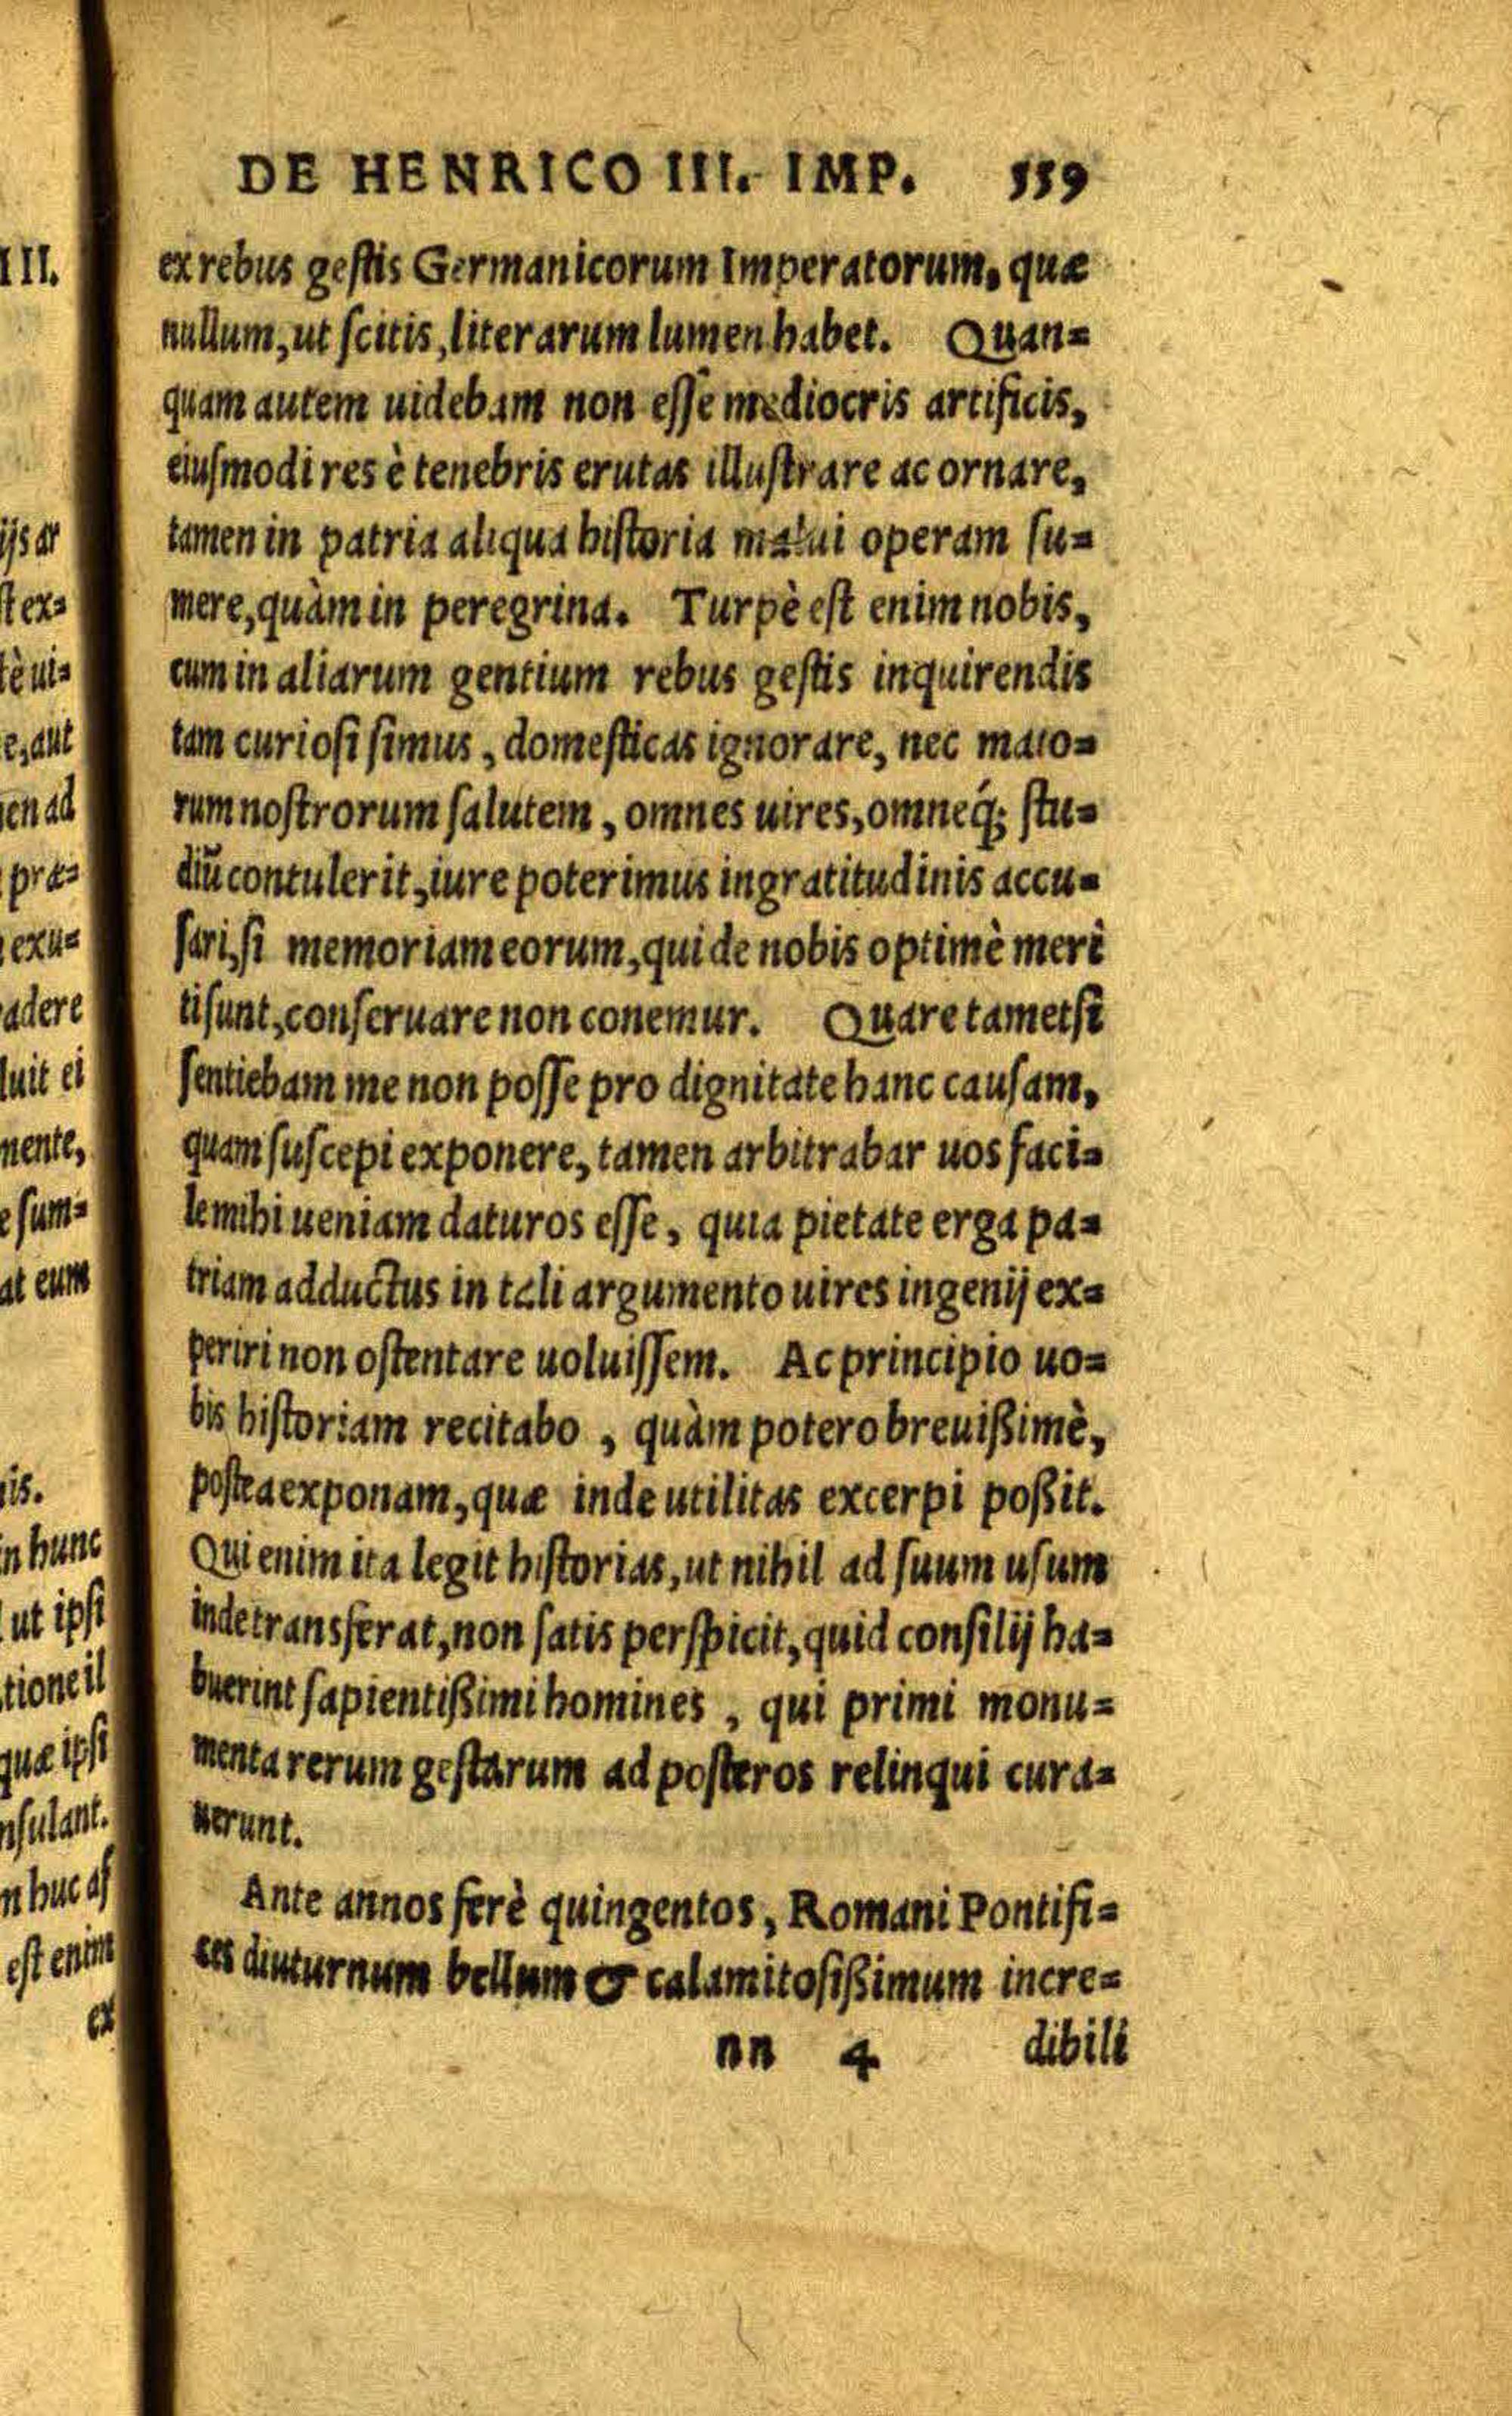 DE HENRICO III. IMP. 559
III.
ex rebus gestis Germanicorum Imperatorum, quæ
nullum, ut scitis, literarum lumen habet. Quan=
quam autem uidebam non esse mediocris artificis,
eiusmodi res è tenebris erutas illustrare ac ornare,
tamen in patria aliqua historia malui operam su=
mere, quàm in peregrina. Turpè est enim nobis,
cum in aliarum gentium rebus gestis inquirendis
tam curiosi simus, domesticas ignorare, nec maio=
rum nostrorum salutem, omnes uires, omneq́; stu=
diũ contulerit, iure poterimus ingratitudinis accu=
sari, si memoriam eorum, qui de nobis optimè meri
ti sunt, conseruare non conemur. Quare tametsi
sentiebam me non posse pro dignitate hanc causam,
quam suscepi exponere, tamen arbitrabar uos faci=
le mihi ueniam daturos esse, quia pietate erga pa=
triam adductus in tali argumento uires ingenij ex=
periri non ostentare uoluissem. Ac principio uo=
bis historiam recitabo, quàm potero breuißimè,
postea exponam, quæ inde utilitas excerpi poßit.
Qui enim ita legit historias, ut nihil ad suum usum
inde transferat, non satis perspicit, quid consilij ha=
buerint sapientißimi homines, qui primi monu=
menta rerum gestarum ad posteros relinqui cura=
uerunt.
Ante annos ferè quingentos, Romani Pontifi=
ces diuturnum bellum & calamitosißimum incre=
nn 4 dibili